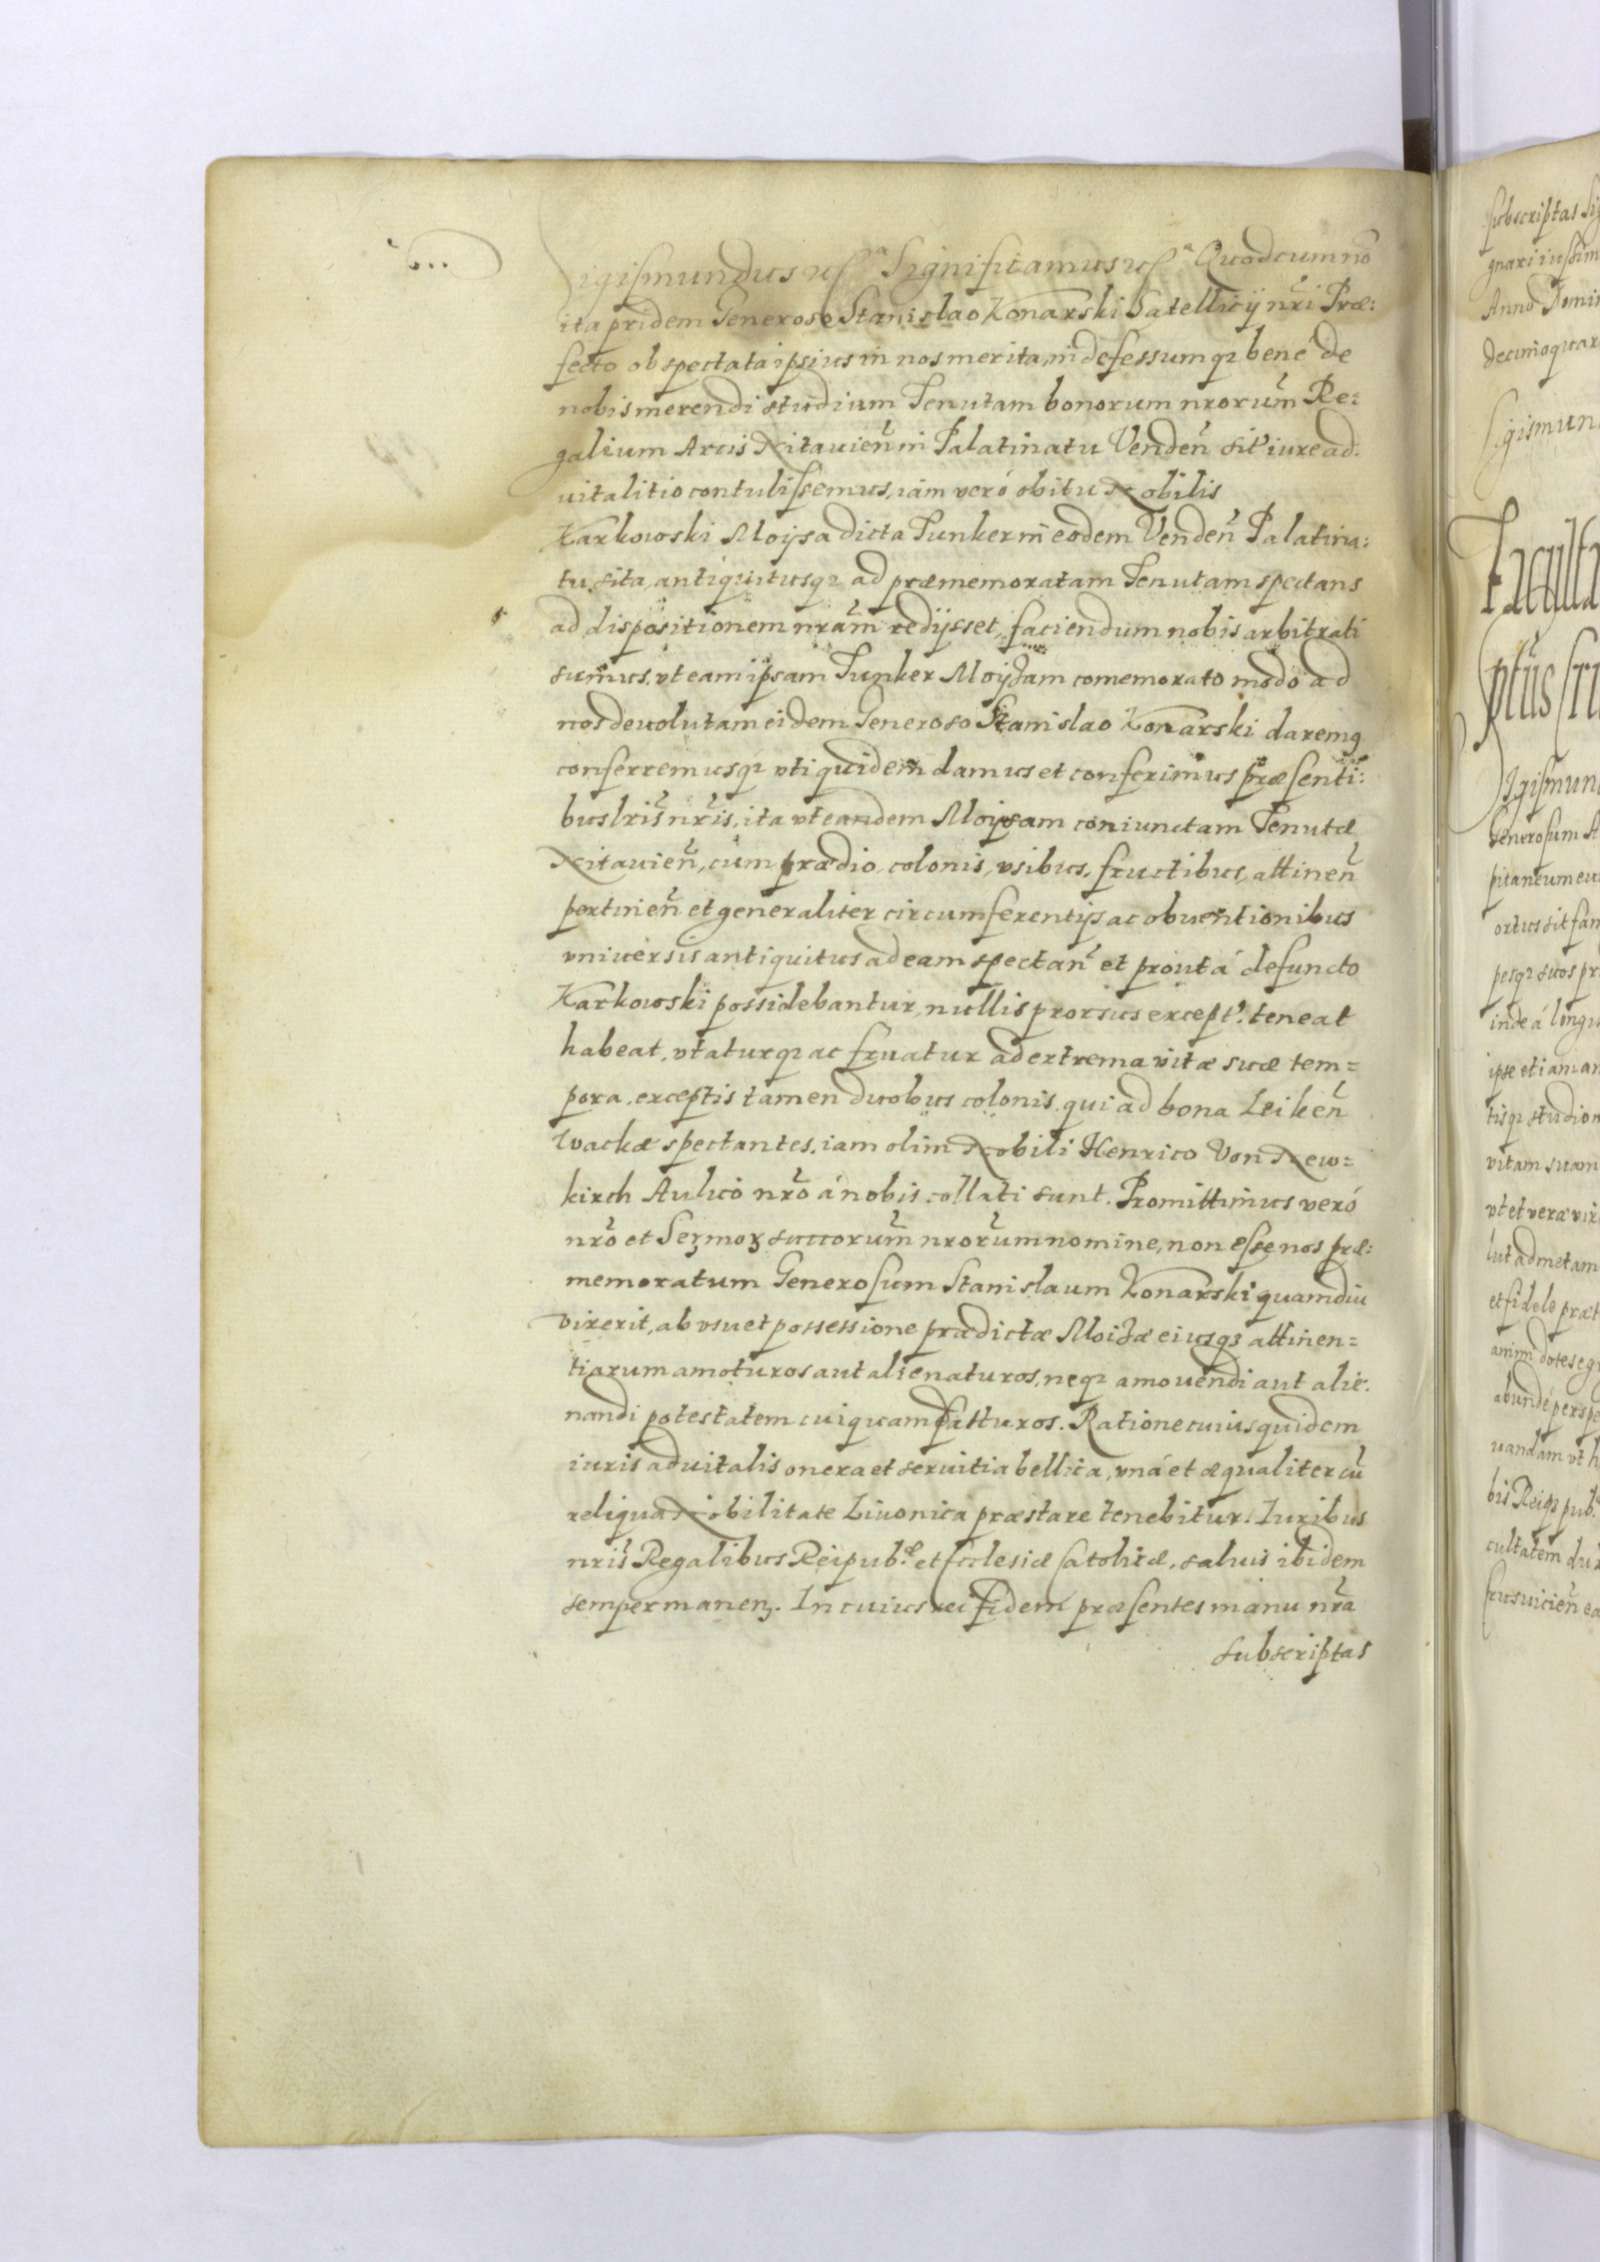 Sigismundus etc̃a Significamus etc̃a Quod cum nõ
ita pridem Generoso Stanislao Konarski Satellicij nr̃i Præ:
fecto ob spectata ipsius in nos merita, indefessumq; bene de
nobis merendi studium Tenutam bonorum nrorum̃ Re:
galium Arcis Nitauien̄ in Palatinatu Venden̄ sit' iure ad.
uitalitio contulissemus, iam veró obitu Nobilis
Karkowski Moysa dicta Junker in eodem Venden̄ Palatina:
tu sita, antiquitusq; ad præmemoratam Tenutam spectans
ad dispositionem nram̃ redijsset, faciendum nobis arbitrati
sumus, vt eam ipsam Junker Moyzam comemorato modo ad
nos deuolutam eidem Generoso Stanislao Konarski daremꝰ
conferremusq; vti quidem damus et conferimus præsenti:
bus lr̃is nr̃is, ita vt eandem Moysam coniunctam Tenutæ
Nitauien̄, cum prædio, colonis, vsibus, fructibus, attinen̄
pertinen̄ et generaliter circumferentijs ac obuentionibus
vniuersis antiquitus ad eam spectan̄ et prout á defuncto
Karkowski possidebantur, nullis prorsus except'. teneat
habeat, vtaturq; ac fruatur ad extrema vitæ suæ tem=
pora, exceptis tamen duobus colonis, qui ad bona Leiken̄
Wackæ spectantes, iam olim Nobili Henrico Von New=
kirch Aulico nr̃o á nobis collati sunt. Promittimus veró
nr̃o et Serᵐoꝝ succorum̃ nrorum̃ nomine, non esse nos præ:
memoratum Generosum Stanislaum Konarski quamdiu
vixerit, ab vsu et possessione prædictæ Moizæ eiusq; attinen=
tiarum amoturos aut alienaturos, neq; amouendi aut alie:
nandi potestatem cuiquam facturos. Ratione cuius quidem
iuris aduitalis onera et seruitia bellica, vná et æqualiter cũ
reliqua Nobilitate Liuonica præstare tenebitur. Iuribus
nr̃is Regalibus Reipub.æ et Ecclesiæ Catolicæ, saluis ibidem
semper manenꝫ. In cuius rei fidem præsentes manu nr̃a
subscriptas
subscriptas Sig
gnari iussim
Anno Domin
decimoquar
Sigismun
Faculta
ptus
Sigismun
Generosum St
pitaneum
ortus sit fam
pesq; suos pr
inde á longi
ipse etiam an
tisq; studio
vitam suam
vt et vera vir
lut ad metam
et fidele præ
animi dotes
abundé perspe
uandam vt h
bis Reiq; pub.
cultatem